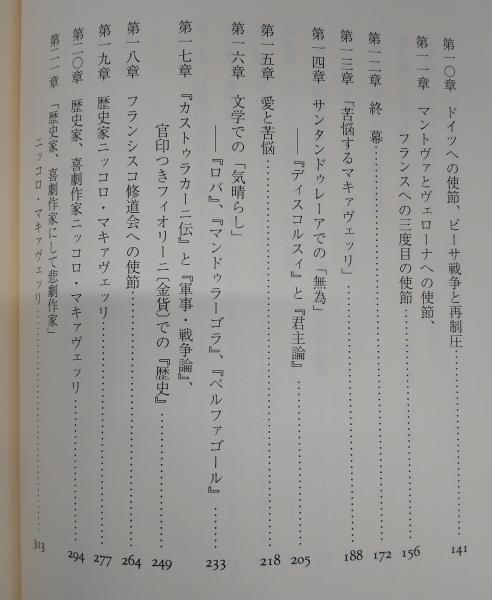 第一〇章　ドイツへの使節、ピーサ戦争と再制圧……141
第一一章　マントヴァとヴェローナへの使節、
フランスへの三度目の使節……156
第一二章　終　幕……172
第一三章　「苦悩するマキァヴェッリ」……188
第一四章　サンタンドゥレーアでの「無為」
――『ディスコルスィ』と『君主論』……205
第一五章　愛と苦悩……218
第一六章　文学での「気晴らし」
――『ロバ』、『マンドゥラーゴラ』、『ベルファゴール』……233
第一七章　『カストゥラカーニ伝』と『軍事・戦争論』、
官印つきフィオリーニ〔金貨〕での『歴史』……249
第一八章　フランシスコ修道会への使節……264
第一九章　歴史家ニッコロ・マキァヴェッリ……277
第二〇章　歴史家、喜劇作家ニッコロ・マキァヴェッリ……294
第二一章　「歴史家、喜劇作家にして悲劇作家」
ニッコロ・マキァヴェッリ……313